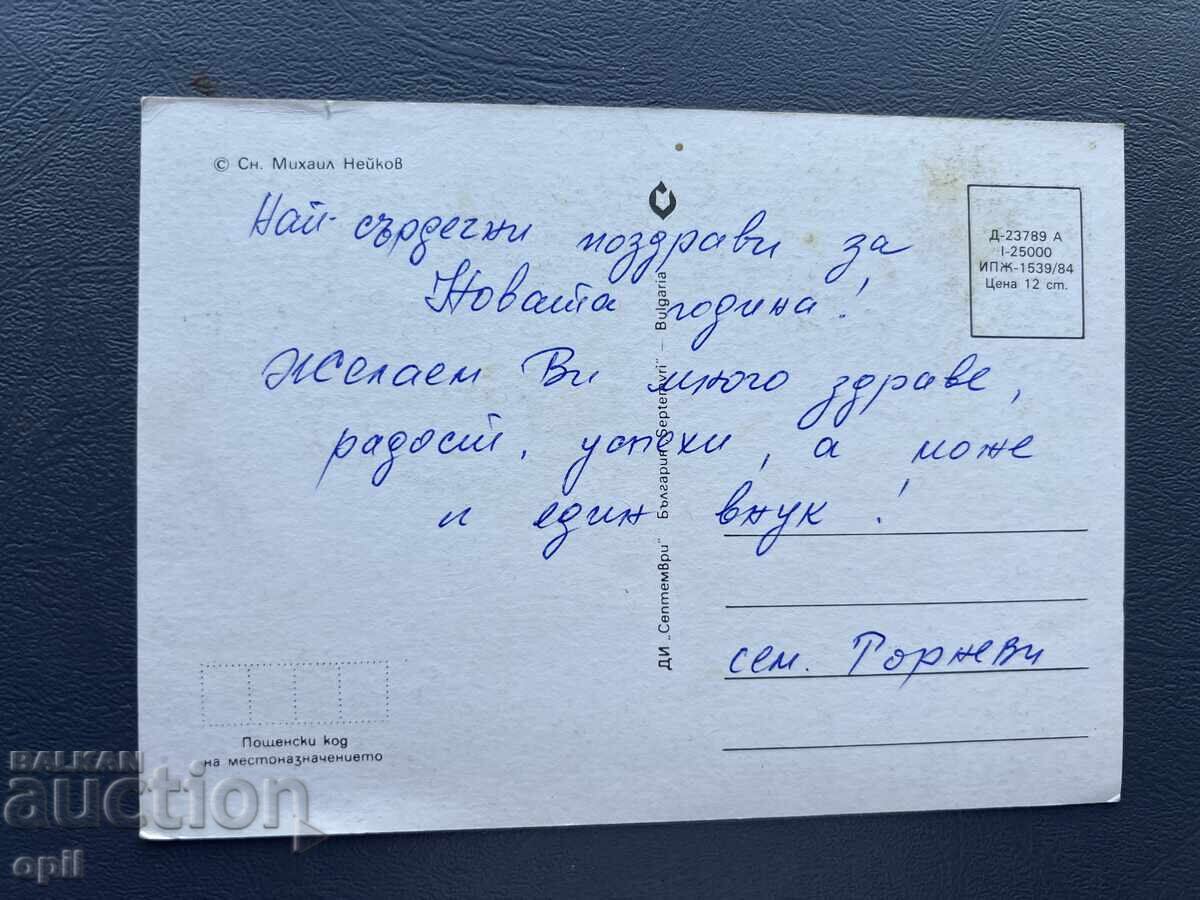 © Сн. Михаил Нейков
Най-сърдечни поздрави за
Новата година!
Желаем Ви много здраве,
радост, успехи, а може
и един внук!
сем. Горневи
Д-23789 А
I-25000
ИПЖ-1539/84
Цена 12 ст.
ДИ „Септември“ България „Septemvri“ — Bulgaria
Пощенски код
на местоназначението
BALKAN
auction
opil